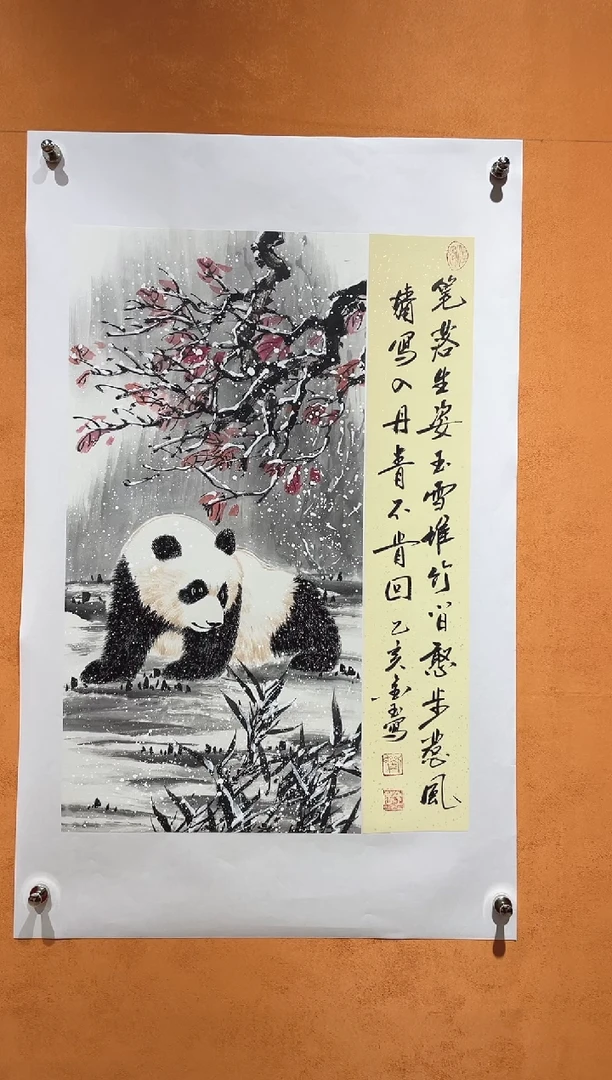 笔落生姿玉雪堆竹间憨步惹風
情寫入丹青不肯回
乙亥金玉寫